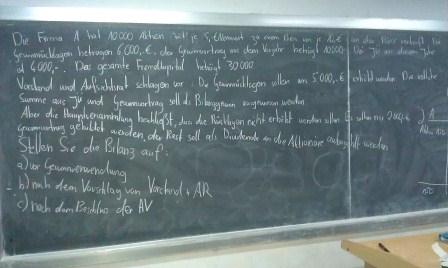 Die Firma A hat 10000 Aktien zu je 5,- € Nennwert zu einem von je 12 € an der Börse verkauft. Die
Gewinnrücklagen betragen 6000,- €, der Gewinnvortrag aus dem Vorjahr beträgt 10000,-. Der JÜ an diesem Jahr
ist 4000,-. Das gesamte Fremdkapital beträgt 30000
Vorstand und Aufsichtsrat schlagen vor: Die Gewinnrücklagen sollen um 5000,- € erhöht werden. Die restliche
Summe aus JÜ und Gewinnvortrag soll als Bilanzgewinn ausgewiesen werden
Aber die Hauptversammlung beschließt, dass die Rücklagen nicht erhöht werden sollen. Es sollen nur
Gewinnvortrag gebildet werden, der Rest soll als Dividende an die Aktionäre ausgezahlt werden
Stellen Sie die Bilanz auf:
a) vor Gewinnverwendung
b) nach dem Vorschlag von Vorstand + AR
c) nach dem Beschluss der HV
A